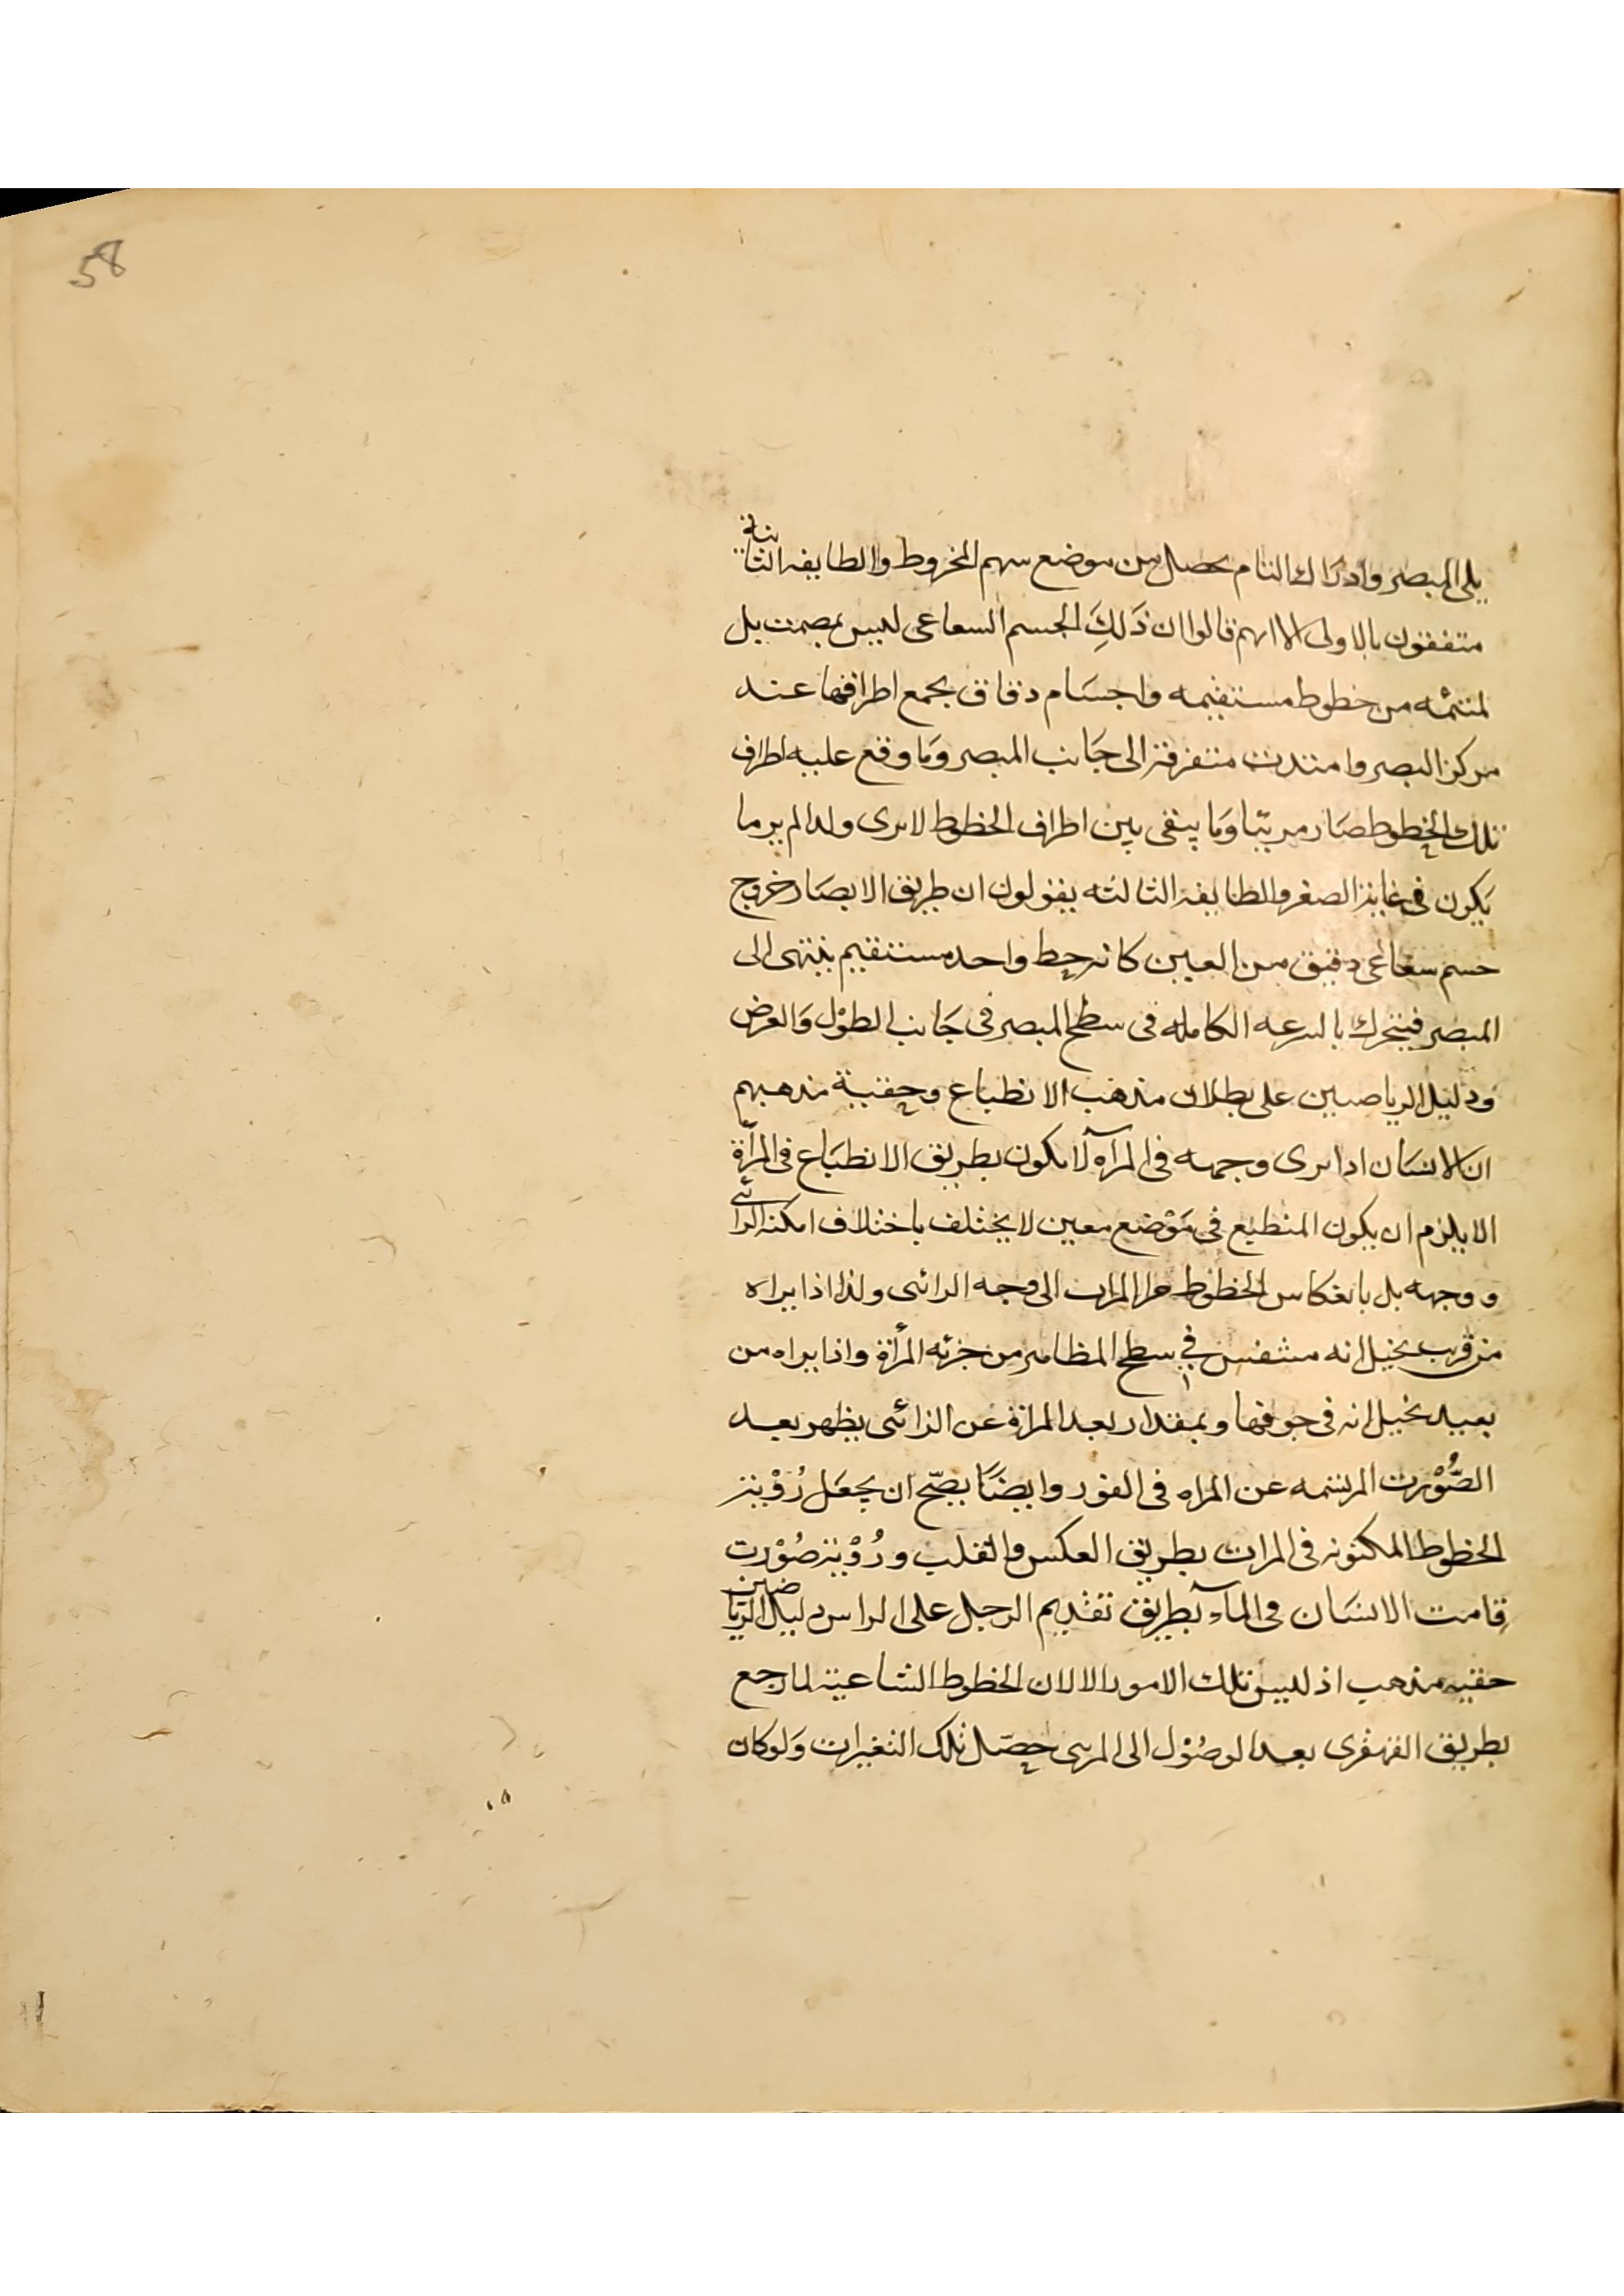 58
يلى المبصر وادراك التام يحصل من موضع سهم المخروط والطايفه الثانية
متفقون بالاولى الا انهم قالوا ان ذَلِكَ الجسم الشعاعى ليس بمصمت بل
ملتئمه من خطوط مستقيمه واجسَام دقاق يجمع اطرافها عند
مركز البصر وامتدت متفرقة الى جَانب المبصر وَما وقع عليه اطراف
تلك الخطوط صَار مريّيا وَما يبقى بين اطراف الخطوط لا يرى ولذا لم ير ما
يَكون فى غاية الصغر والطايفه الثالثه يقولون ان طريق الابصَار خروج
جسم شعاعى دقيق من العين كانه خط واحد مستقيم ينتهى الى
المبصر فيتحرك بالسرعه الكامله فى سطح المبصر فى جَانب الطوْل وَالعرض
ودليل الرياضيين على بطلان مذهب الانطباع وحقية مذهبهم
ان الانسَان اذا يرى وجهه فى المرآه لا يكون بطريق الانطبَاع فى المرآة
الا يلزم ان يكون المنطبع فى مَوْضع معين لا يختلف باختلاف امكنة الرائى
ووجهه بل بانعكاس الخطوط من المرات الى وجه الرائى ولذا اذا يراه
من قريب يخيل انه فى سطح الظاهر من جزئه المرأة واذا يراه من
بعيد يخيل انه فى جوفها وبمقدار بعد المراة عن الرائى يظهر بعد
الصُّوْرت المرتسمه عن المراه فى الغور وايضَا يصحّ ان يجعَل رُؤية
الخطوط المكتوبه فى المرات بطريق العكس والقلب ورُؤية صُوْرت
قامت الانسَان فى المآء بطريق تقديم الرجل على الراس دليل الريَاضين
حقيه مذهب اذ ليس تلك الامور الا لان الخطوط الشاعية لما رجع
بطريق القهقرى بعد الوصُوْل الى المرىى حصّل تلك التغيرات وَلوكان